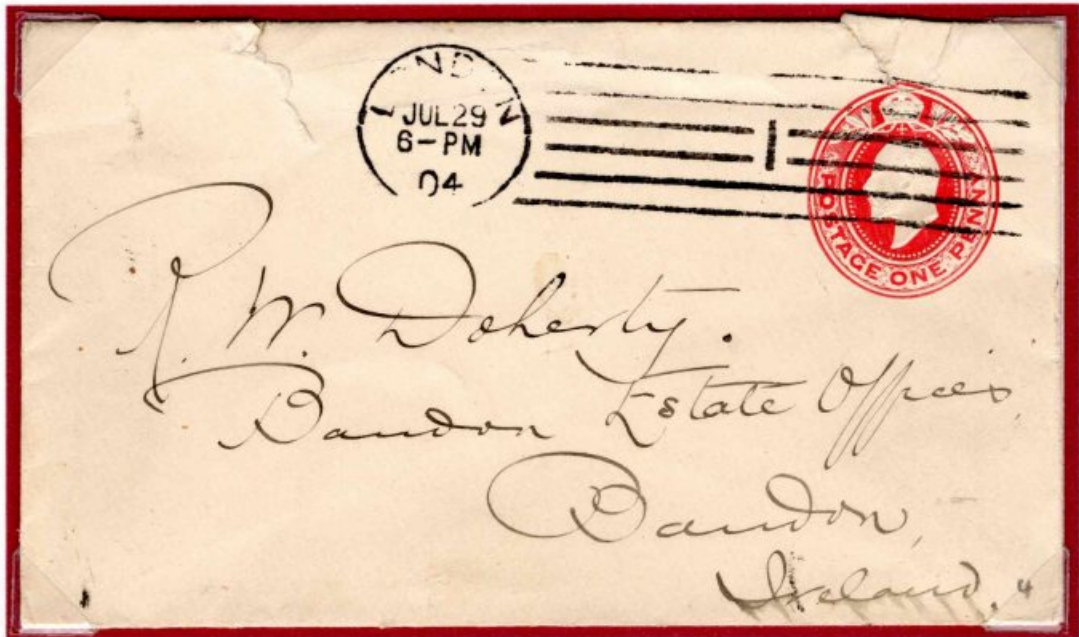 LONDON
JUL 29
6-PM
04
1
POSTAGE ONE PENNY
R. W. Doherty.
Bandon Estate Offices,
Bandon,
Ireland.
4